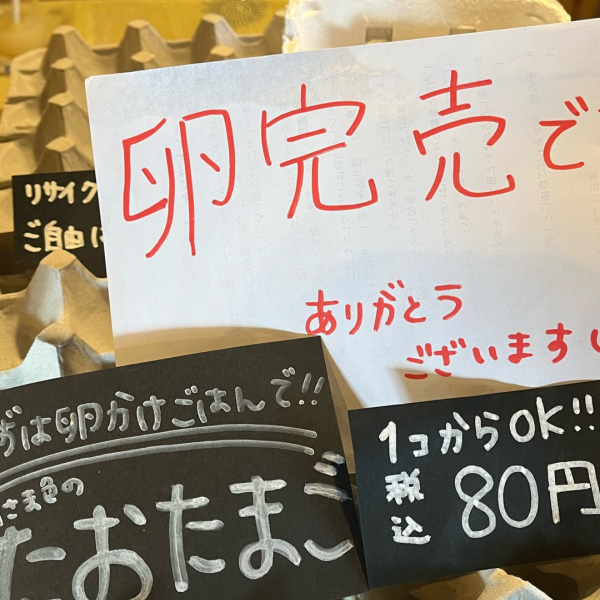 卵完売で
ありがとう
ございます
リサイク
ご自由に
ずは卵かけごはんで!!
さま色の
たおたまご
1コからOK!!
税込
80円